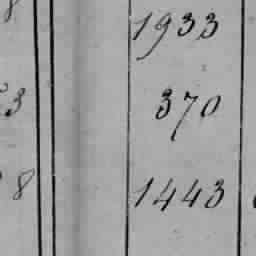 8 1933
3 370
8 1443